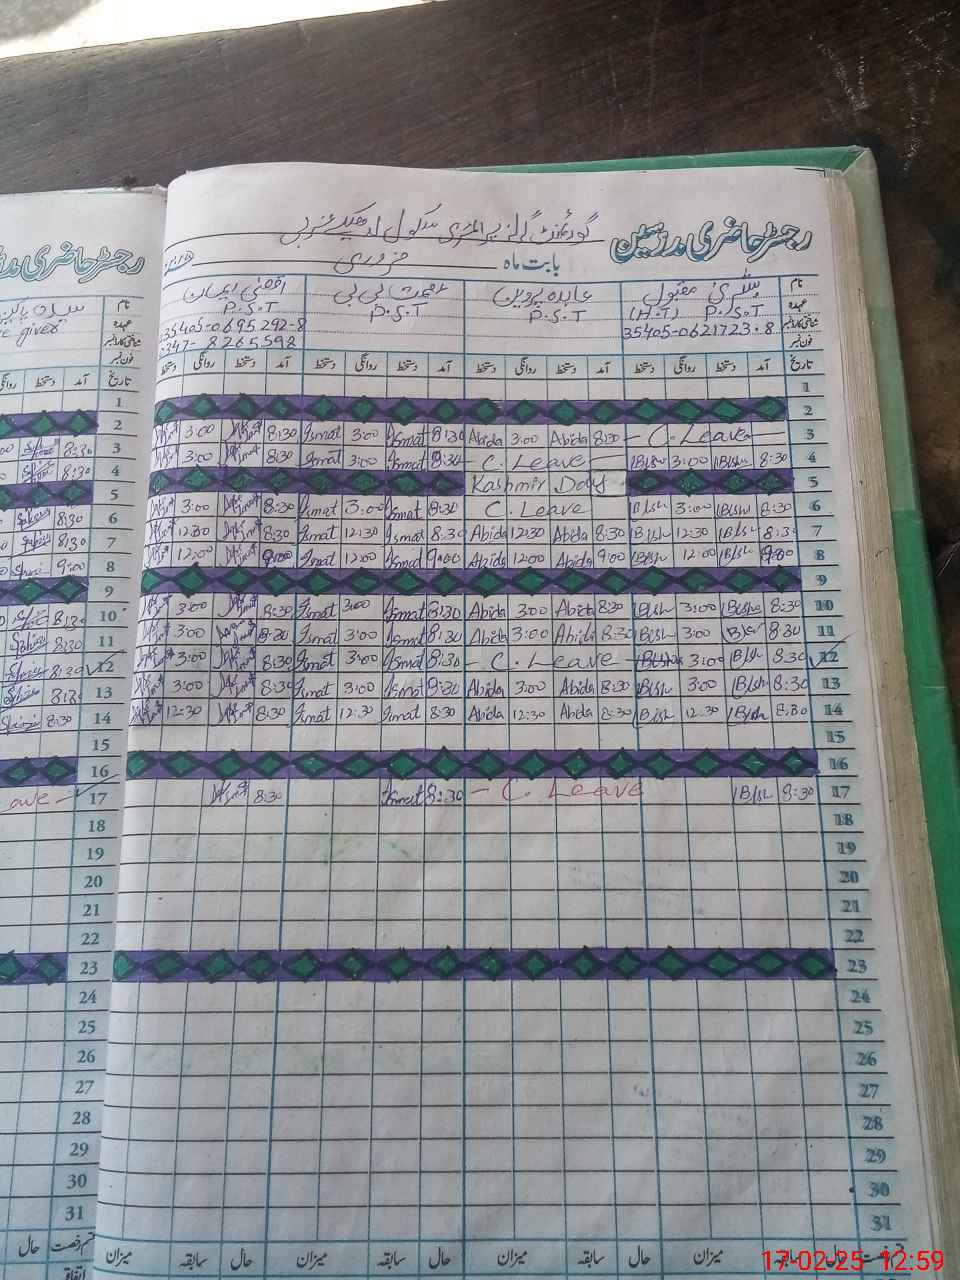 رجسٹر حاضری مدرسین
گورنمنٹ گرلز پرائمری سکول
بابت ماہ فروری
نام بشریٰ مقبول عابدہ پروین عصمت بی بی اقصیٰ ایمان
عہدہ P.S.T (H.T) P.S.T P.S.T P.S.T
شناختی کارڈ نمبر 35405-0621723-8 35405-0695292-8
فون نمبر 0347-8265592
تاریخ آمد دستخط روانگی دستخط آمد دستخط روانگی دستخط آمد دستخط روانگی دستخط آمد دستخط روانگی دستخط
1
2
3 C. Leave 8:30 Abida 3:00 Abida 8:30 Ismat 3:00 Ismat 8:30 3:00
4 8:30 Bish 3:00 Bish C. Leave 8:30 Ismat 3:00 Ismat 8:30 3:00
5 Kashmir Day
6 8:30 Bish 3:00 Bish C. Leave 8:30 Ismat 3:00 Ismat 8:30 3:00
7 8:30 Bish 12:30 Bish 8:30 Abida 12:30 Abida 8:30 Ismat 12:30 Ismat 8:30 12:30
8 9:00 Bish 12:00 Bish 9:00 Abida 12:00 Abida 9:00 Ismat 12:00 Ismat 9:00 12:00
9
10 8:30 Bish 3:00 Bish 8:30 Abida 3:00 Abida 8:30 Ismat 3:00 Ismat 8:30 3:00
11 8:30 Bish 3:00 Bish 8:30 Abida 3:00 Abida 8:30 Ismat 3:00 Ismat 8:30 3:00
12 8:30 Bish 3:00 Bish C. Leave 8:30 Ismat 3:00 Ismat 8:30 3:00
13 8:30 Bish 3:00 Bish 8:30 Abida 3:00 Abida 8:30 Ismat 3:00 Ismat 8:30 3:00
14 8:30 Bish 12:30 Bish 8:30 Abida 12:30 Abida 8:30 Ismat 12:30 Ismat 8:30 12:30
15
16
17 8:30 Bish C. Leave 8:30 Ismat 8:30
18
19
20
21
22
23
24
25
26
27
28
29
30
31
قسم رخصت حال سابقہ میزان حال سابقہ میزان حال سابقہ میزان حال سابقہ میزان
رجسٹر حاضری
نام
عہدہ care giver
شناختی کارڈ نمبر
فون نمبر
تاریخ آمد دستخط روانگی
1
2
3 8:30
4 8:30
5
6 8:30
7 8:30
8 9:00
9
10 8:30
11 8:30
12 8:30
13 8:30
14 8:30
15
16
17
18
19
20
21
22
23
24
25
26
27
28
29
30
31
قسم رخصت حال
اتفاقیہ
17-02-25 12:59